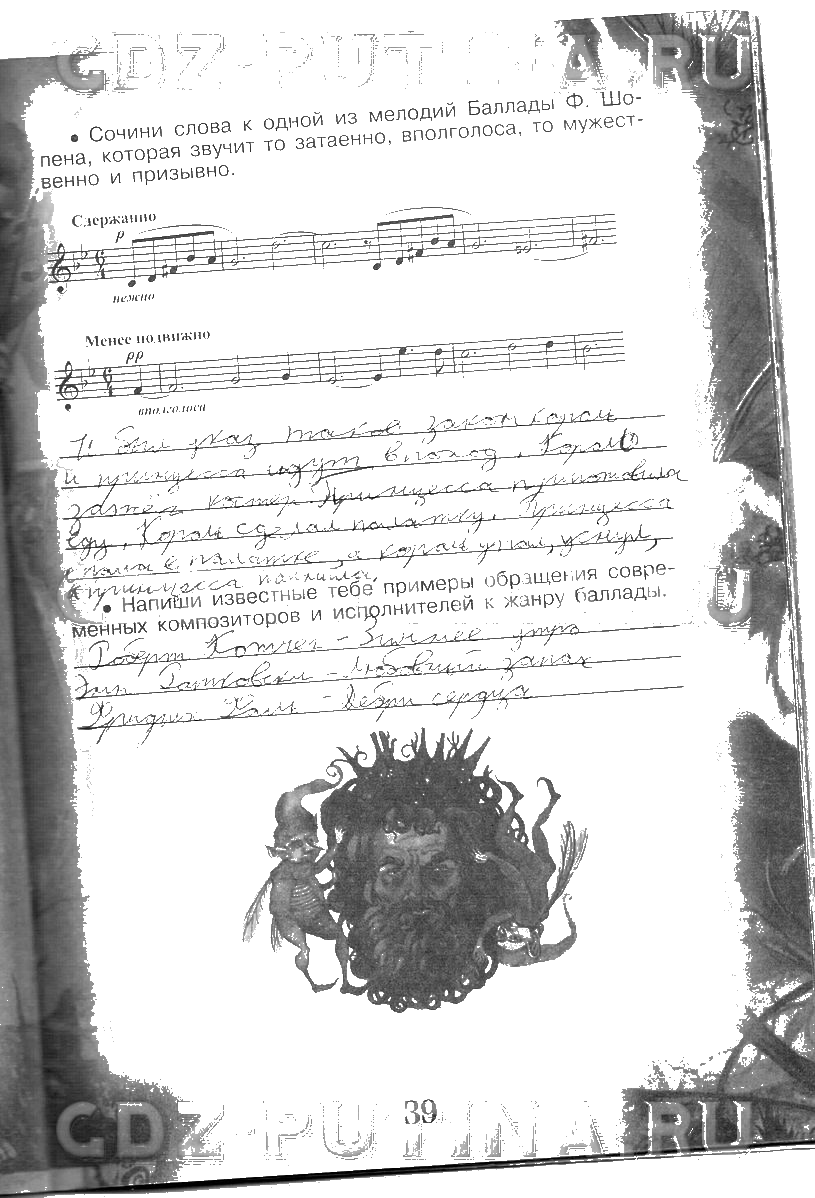 GDZ-PUTINA.RU
• Сочини слова к одной из мелодий Баллады Ф. Шо-
пена, которая звучит то затаенно, вполголоса, то мужест-
венно и призывно.
Сдержанно
p
нежно
Менее подвижно
pp
вполголоса
1. Был указ таков закон король
и принцесса идут в поход. Король
зажёг костер. Принцесса приготовила
еду. Король сделал палатку. Принцесса
спала в палатке, а король упал, уснул,
а принцесса
• Напиши известные тебе примеры обращения совре-
менных композиторов и исполнителей к жанру баллады.
Роберт - Зимнее утро
- Любовный запах
Фридрих - Дебри сердца
39
GDZ-PUTINA.RU